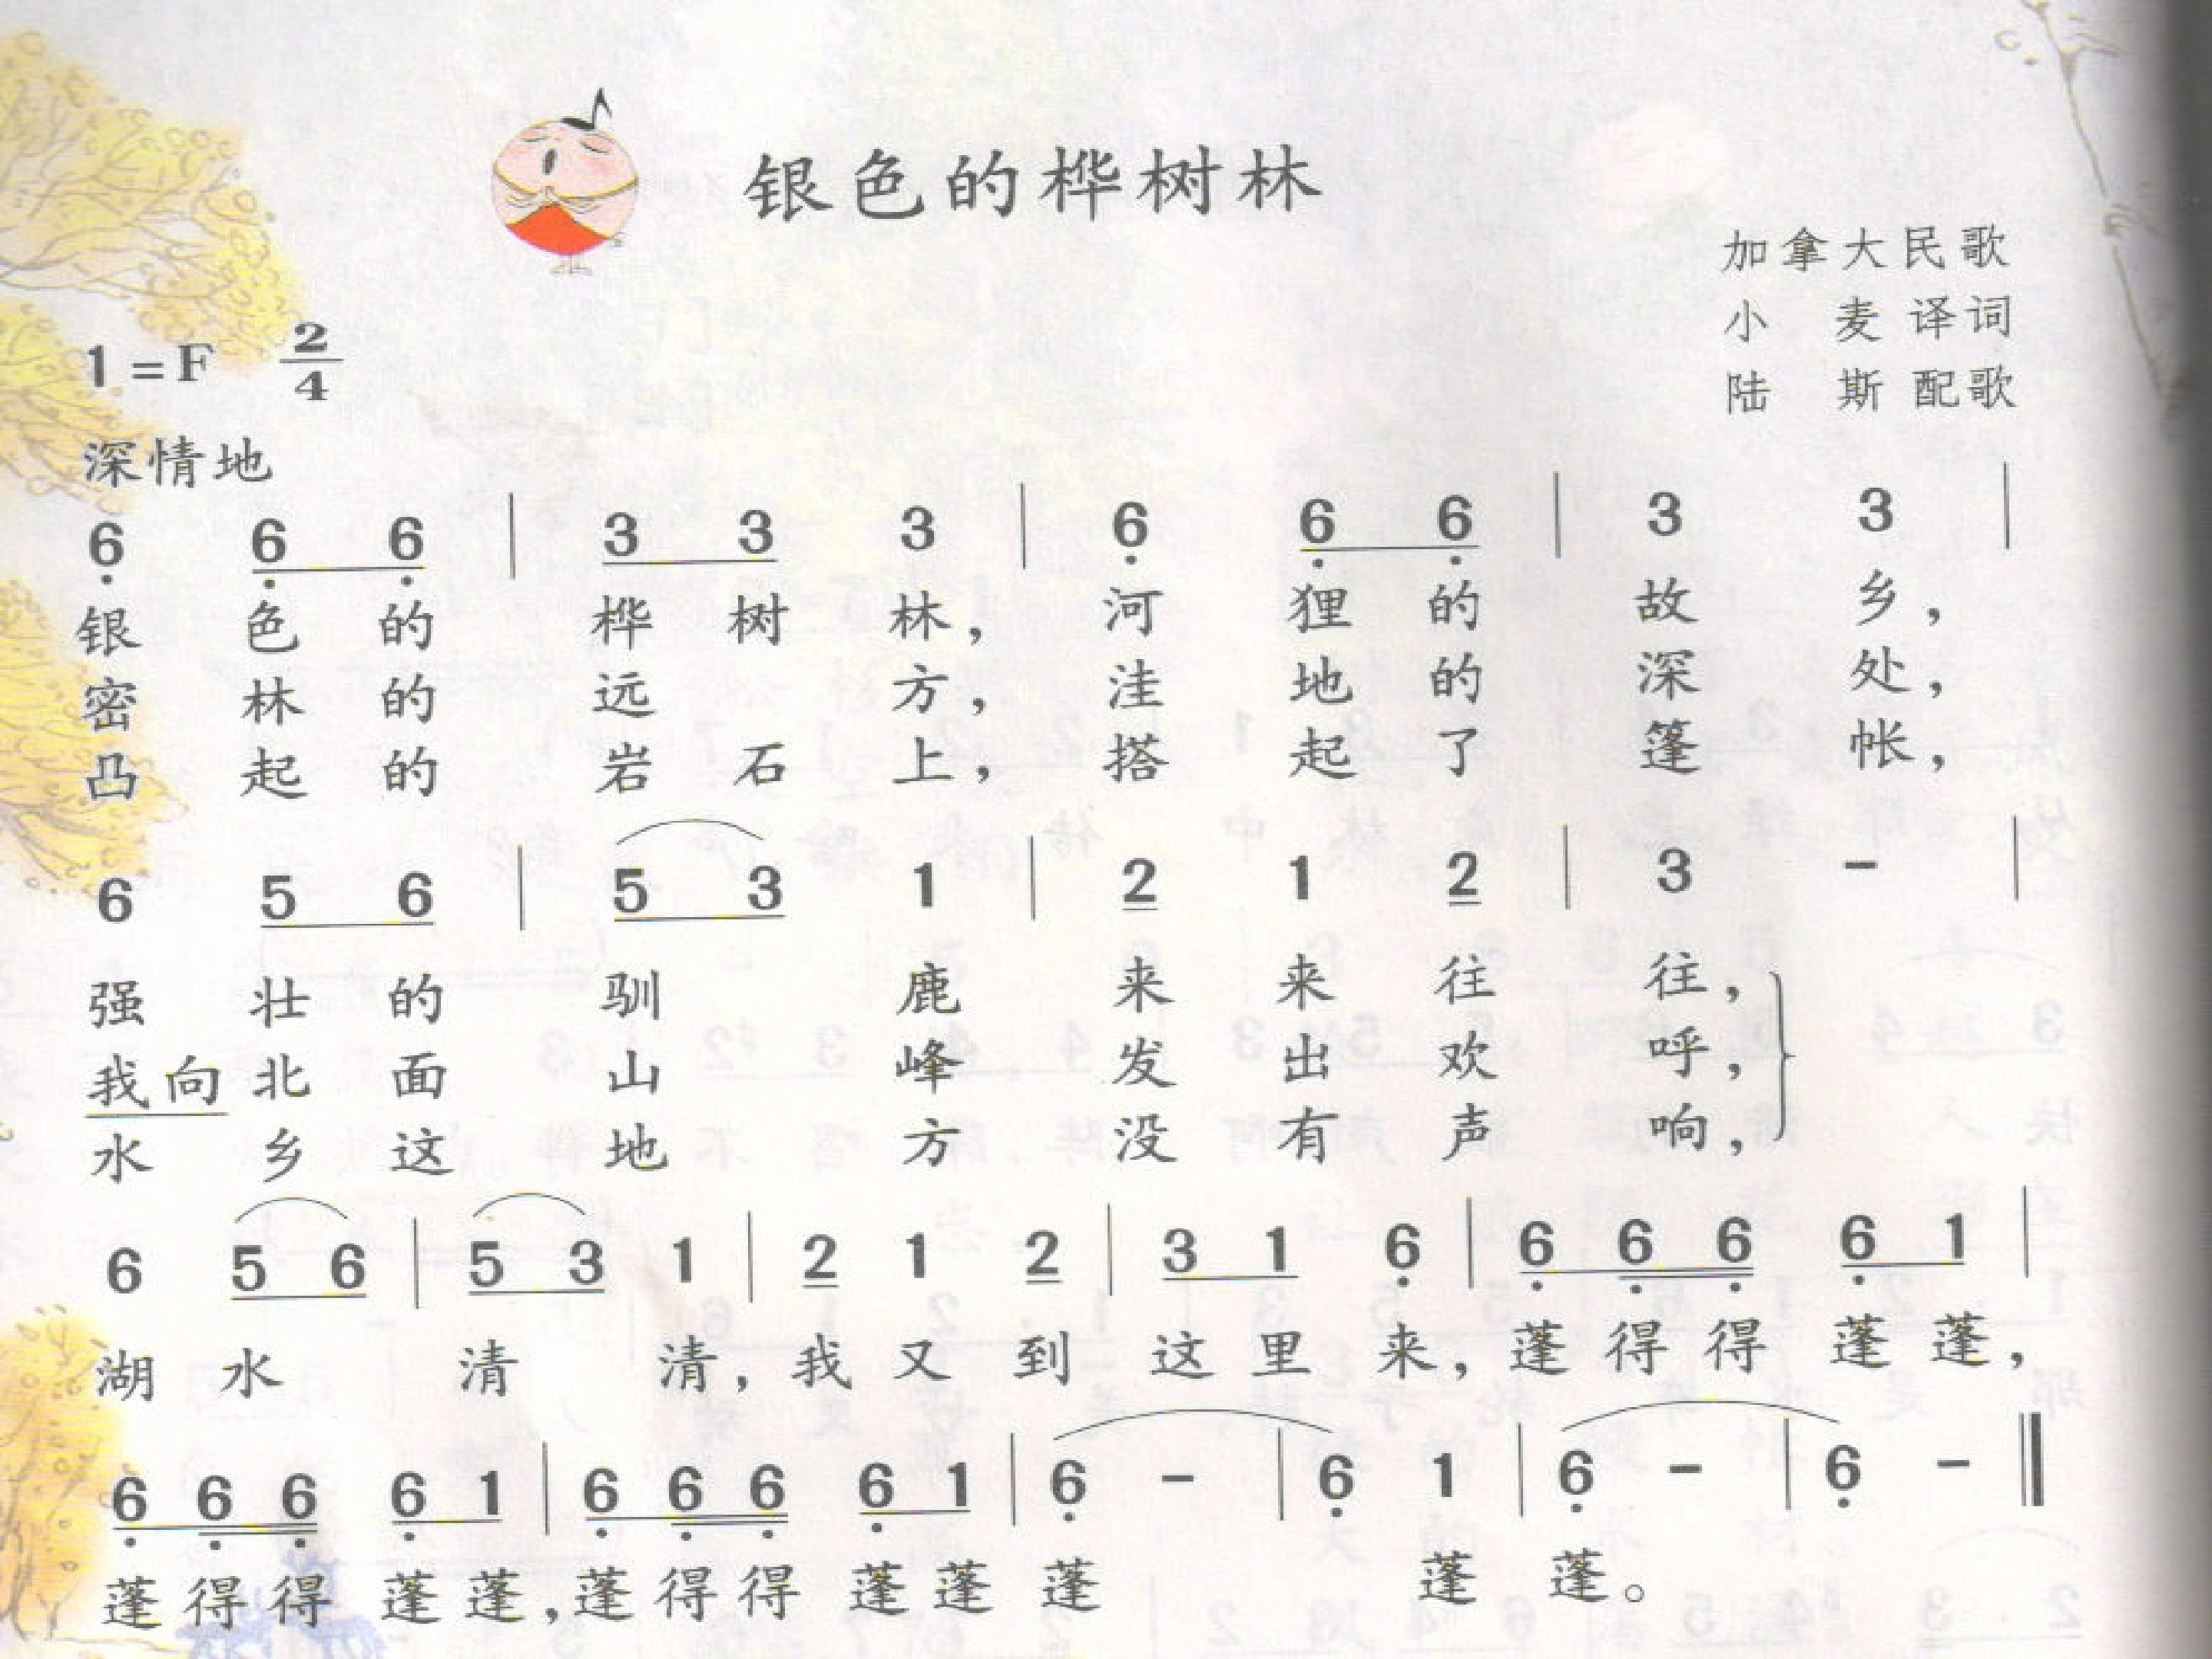 银色的桦树林
加拿大民歌
小 麦 译词
陆 斯 配歌
1=F 2/4
深情地
6̣ 6̣ 6̣ | 3 3 3 | 6̣ 6̣ 6̣ | 3 3 |
银 色 的 桦 树 林， 河 狸 的 故 乡，
密 林 的 远 方， 洼 地 的 深 处，
凸 起 的 岩 石 上， 搭 起 了 篷 帐，
6 5 6 | 5 3 1 | 2 1 2 | 3 - |
强 壮 的 驯 鹿 来 来 往 往，
我 向 北 面 山 峰 发 出 欢 呼，
水 乡 这 地 方 没 有 声 响，
6 5 6 | 5 3 1 | 2 1 2 | 3 1 6̣ | 6̣ 6̣ 6̣ 6̣ 1 |
湖 水 清 清，我 又 到 这 里 来，蓬 得 得 蓬 蓬，
6̣ 6̣ 6̣ 6̣ 1 | 6̣ 6̣ 6̣ 6̣ 1 | 6̣ - | 6̣ 1 | 6̣ - | 6̣ - ‖
蓬 得 得 蓬 蓬，蓬 得 得 蓬 蓬 蓬 蓬 蓬。